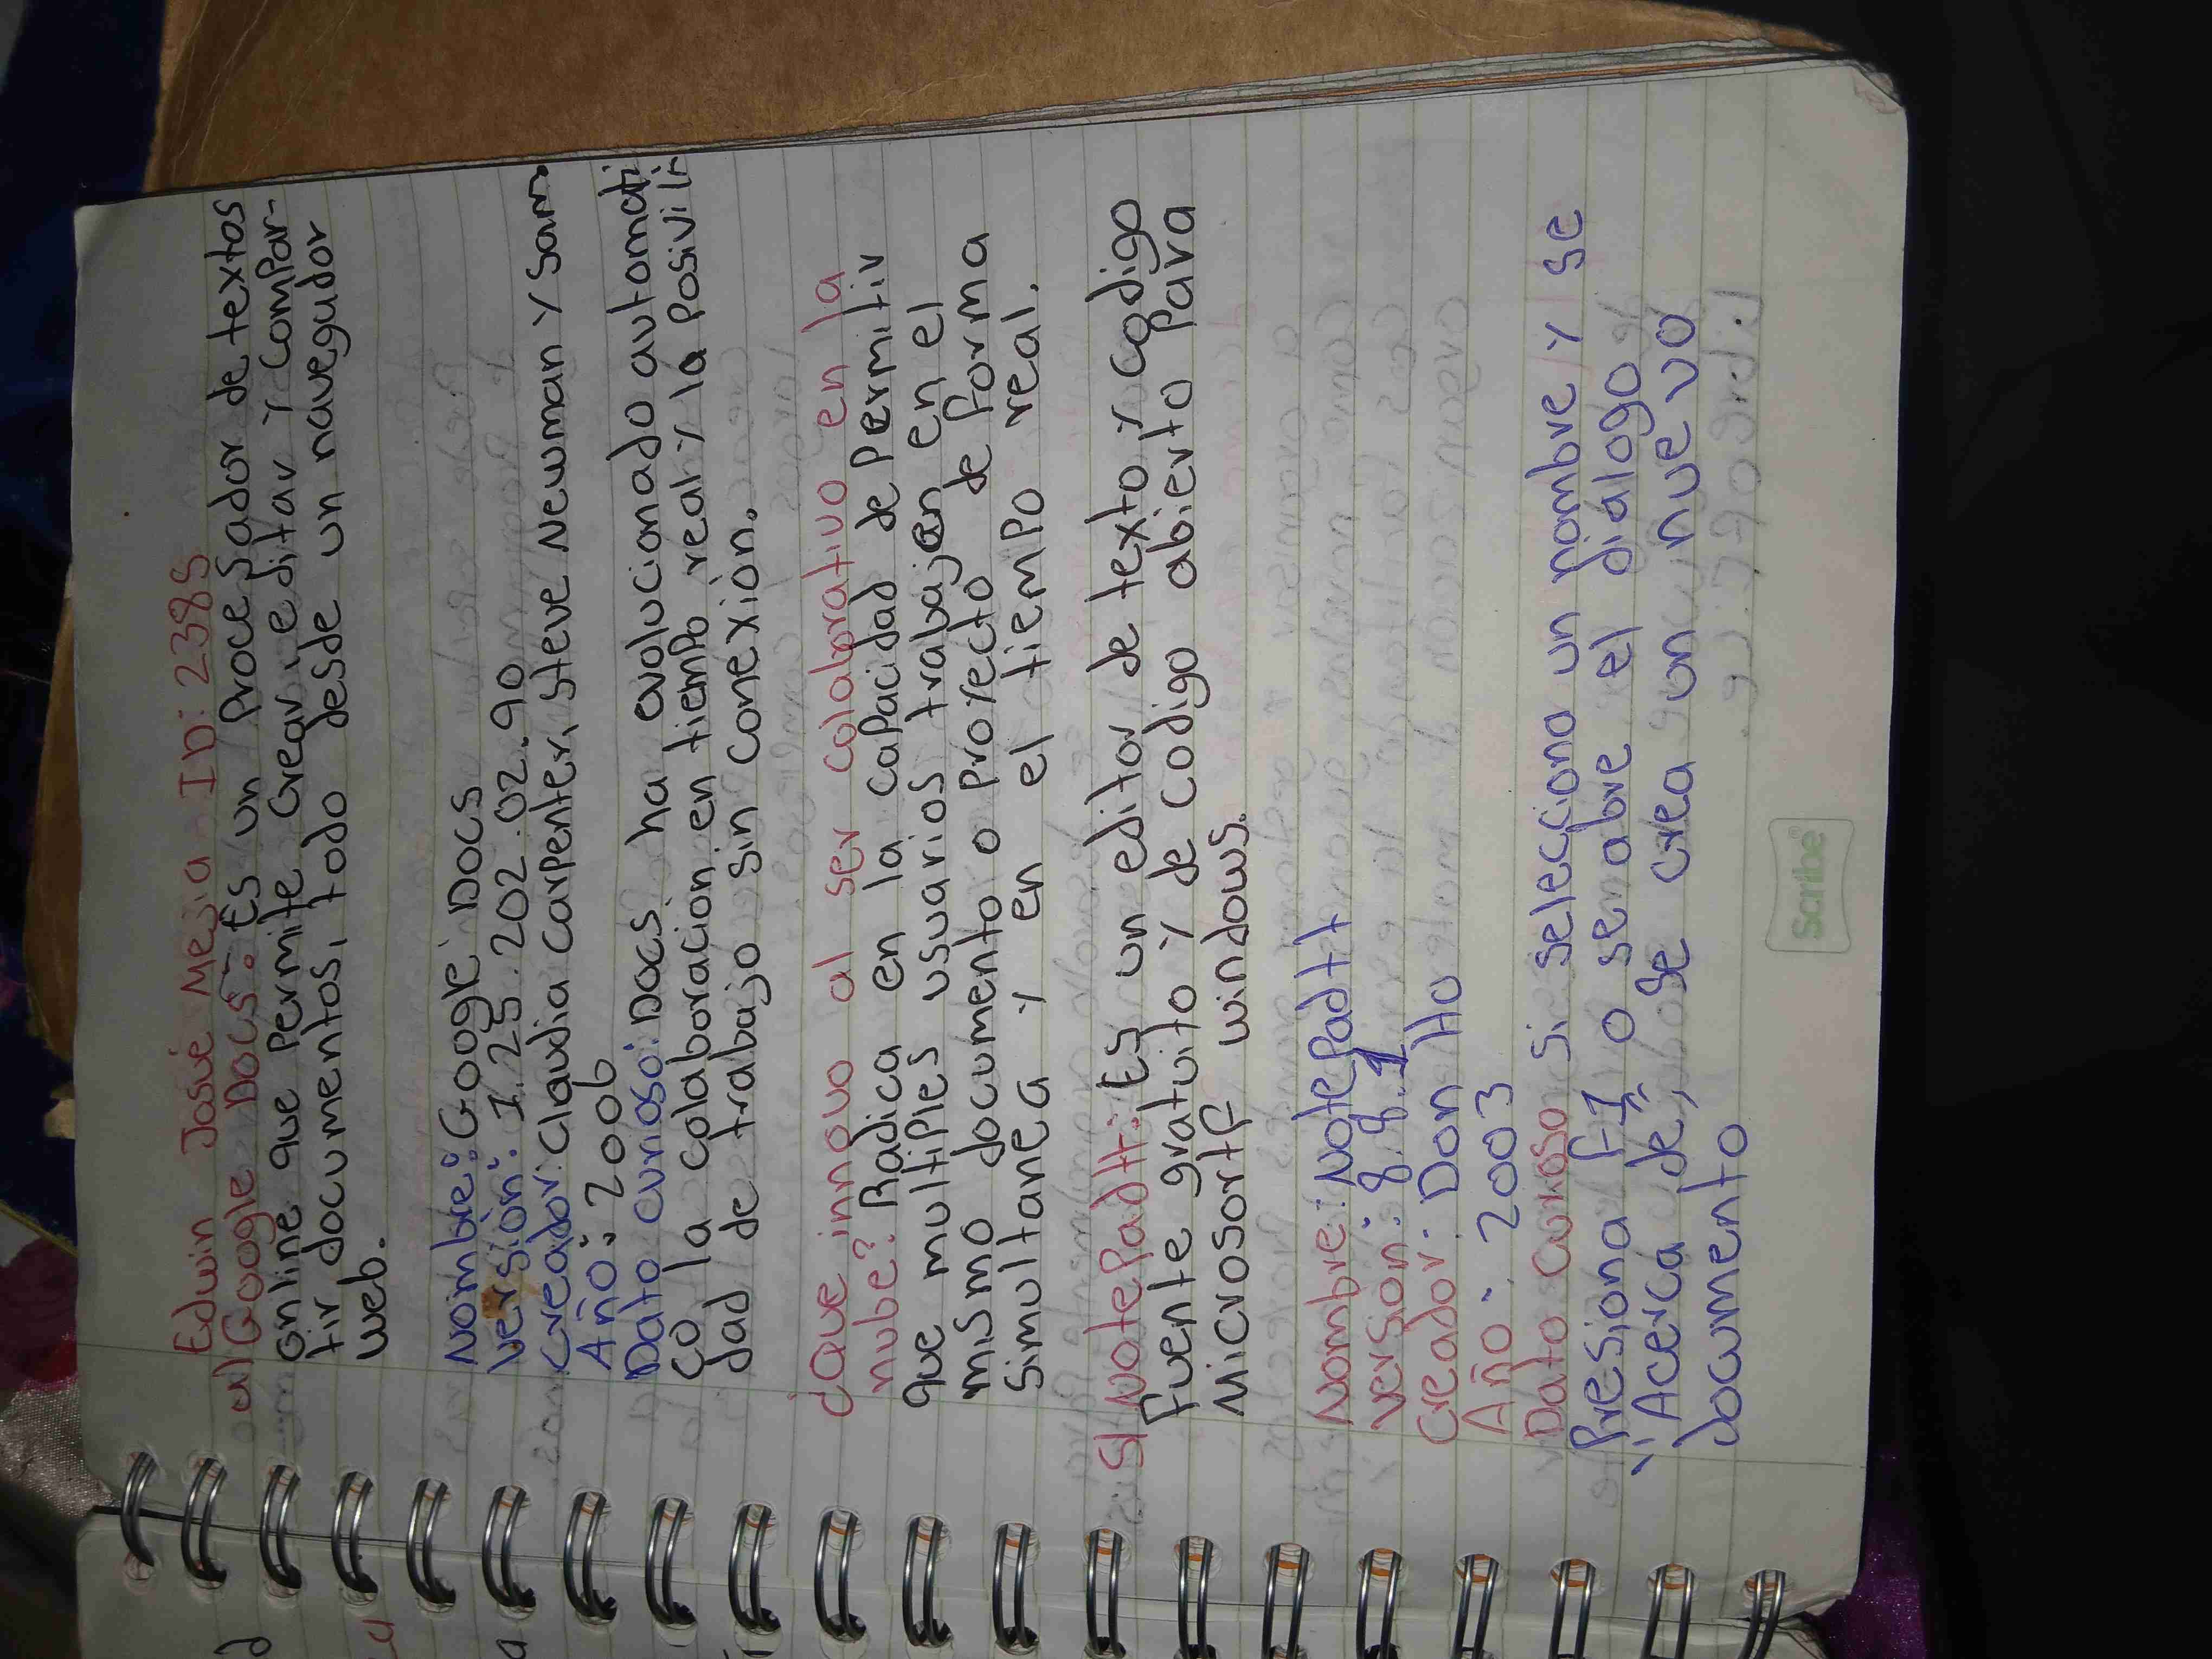 Edwin Josué Mejia ID: 2385
4) Google Docs: Es un Procesador de textos
online que Permite Crear, editar y Compar-
tir documentos, todo desde un navegador
web.
Nombre: Google Docs
Versión: 1.25.202.02.90
Creador: Claudia Carpenter, Steve Newman y Sam
Año: 2006
Dato curioso: Docs ha evolucionado automati
co la colaboracion en tiempo real y la posivili
dad de trabajo sin conexión.
¿Que innovo al ser colabrativo en la
nube? Radica en la capacidad de Permitir
que multiples usuarios trabajen en el
mismo documento o proyecto de forma
simultanea y en el tiempo real.
5) NotePad++: Es un editor de texto y codigo
fuente gratuito y de codigo abierto para
Microsortf windows.
Nombre: NotePad++
Version: 8.8.1
Creador: Don Ho
Año: 2003
Dato curioso si selecciona un nombre y se
Presiona F1 o se abre el dialogo
"Acerca de, se crea un nuevo
documento
Scribe